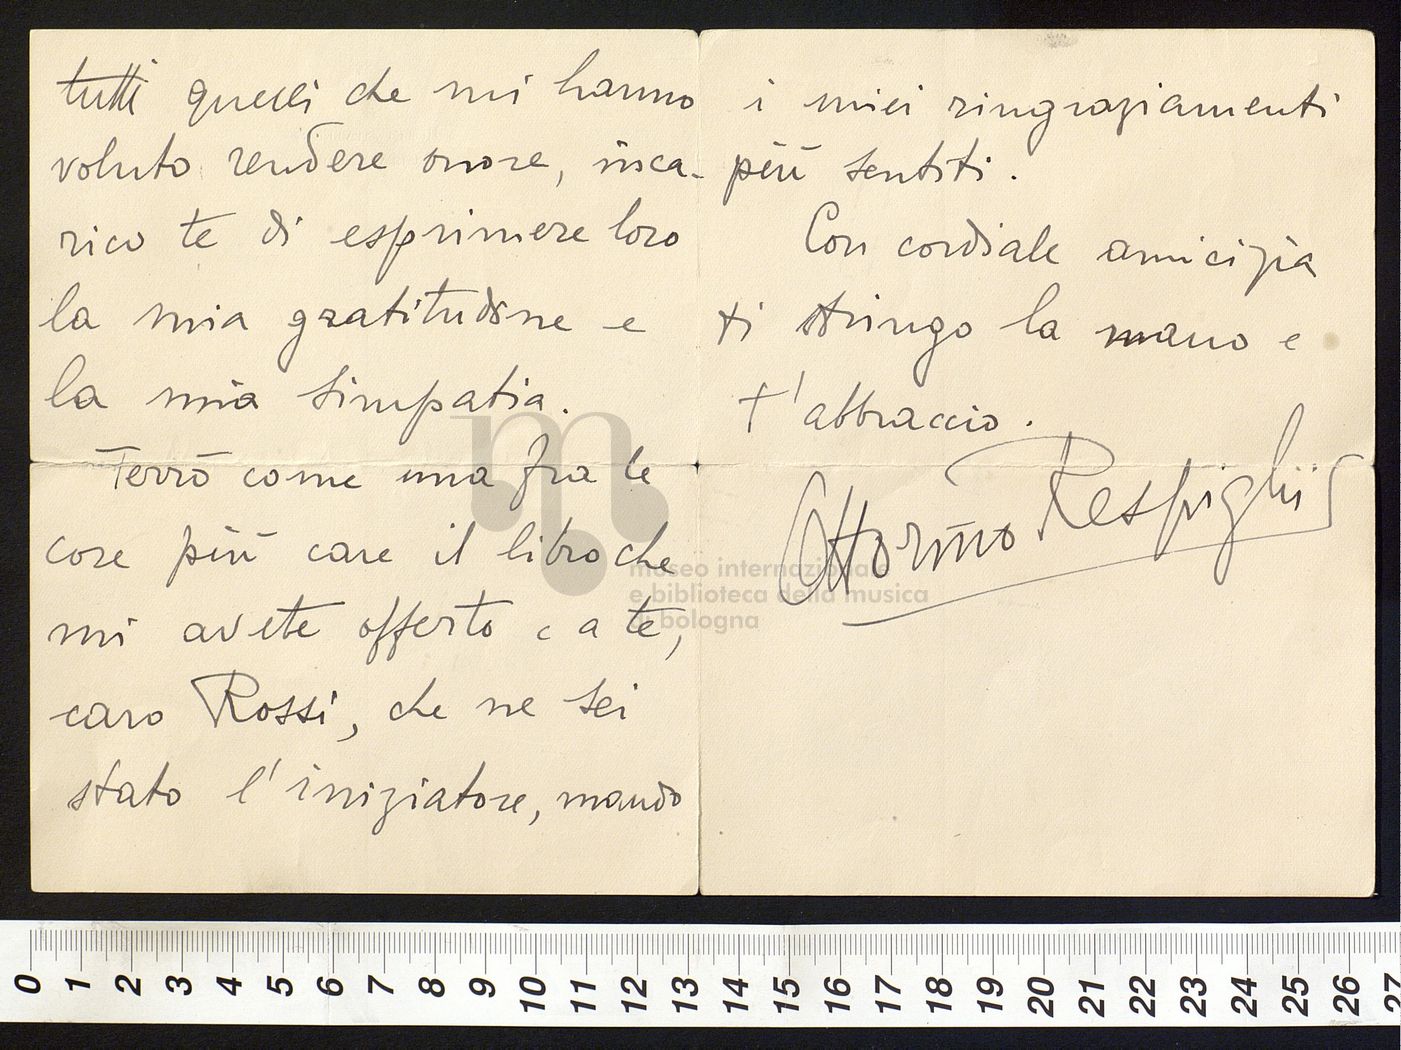 tutti quelli che mi hanno
voluto rendere onore, inca-
rico te di esprimere loro
la mia gratitudine e
la mia simpatia.
Terrò come una fra le
cose più care il libro che
mi avete offerto e a te,
caro Rossi, che ne sei
stato l'iniziatore, mando
i miei ringraziamenti
più sentiti.
Con cordiale amicizia
ti stringo la mano e
t'abbraccio.
Ottorino Respighi
museo internazionale
e biblioteca della musica
di bologna
0 1 2 3 4 5 6 7 8 9 10 11 12 13 14 15 16 17 18 19 20 21 22 23 24 25 26 27